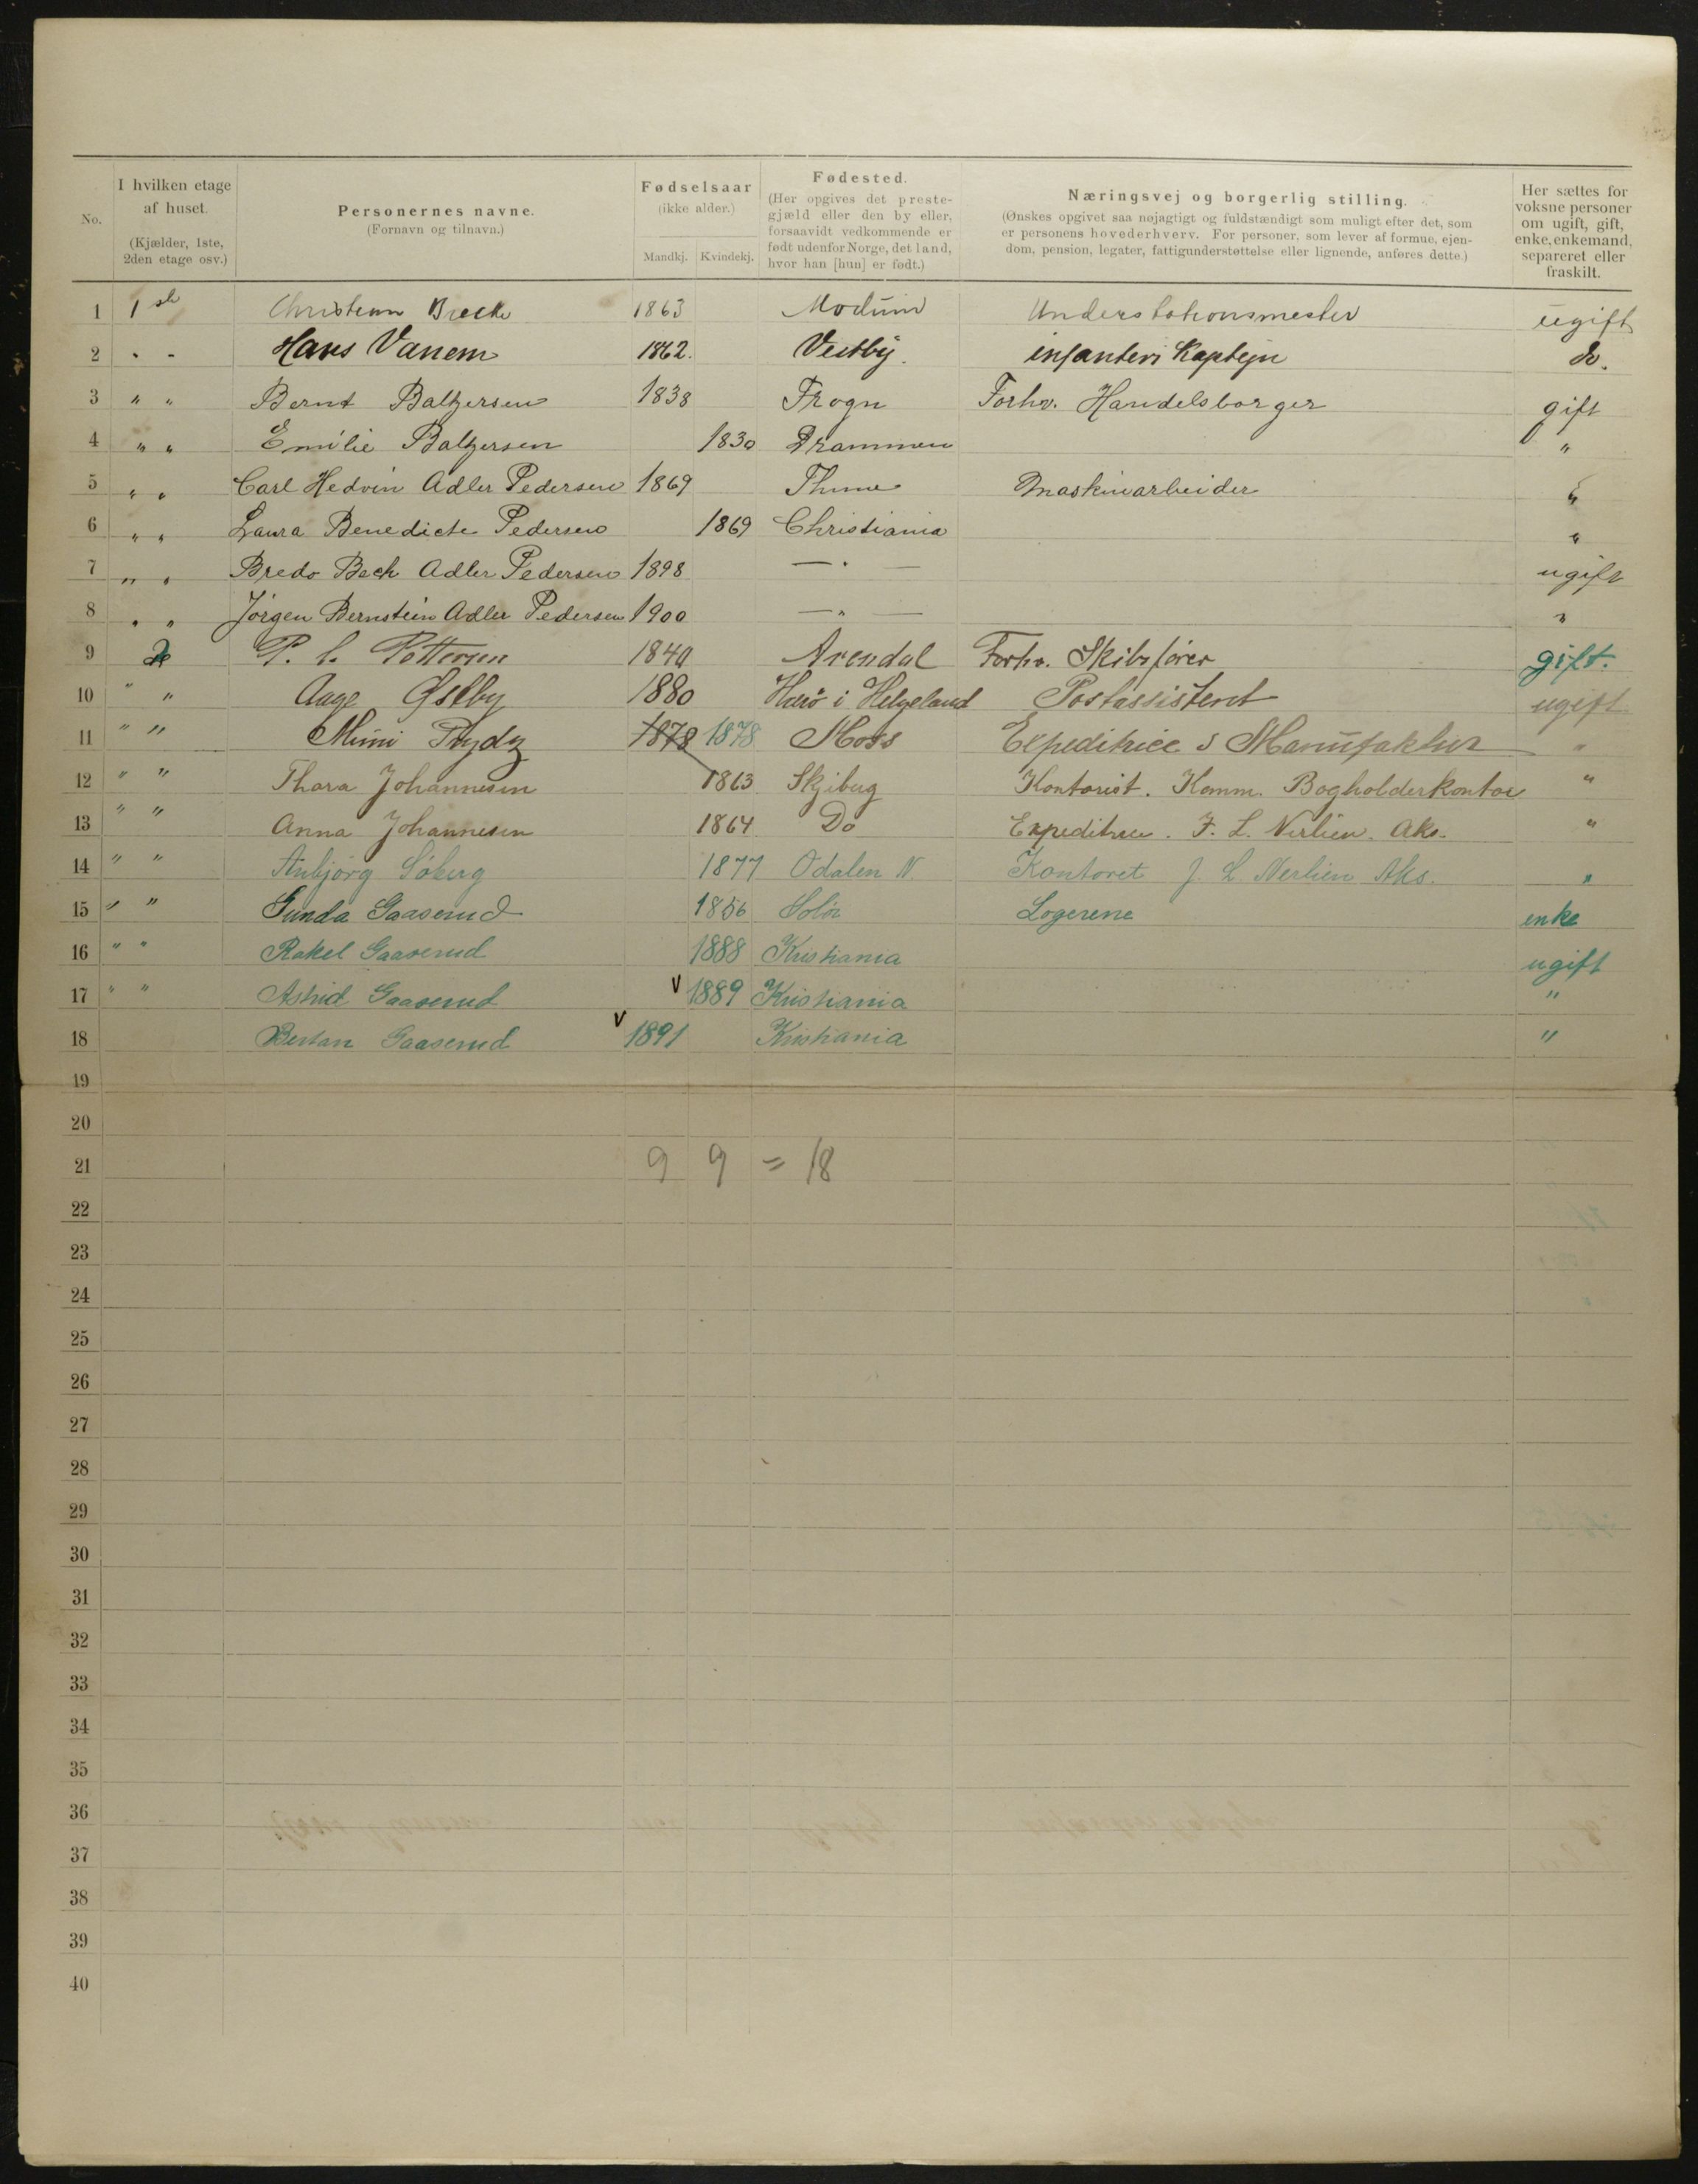 No.
I hvilken etage af huset. (Kjælder, 1ste, 2den etage osv.)
Personernes navne. (Fornavn og tilnavn.)
Fødselsaar (ikke alder.) Mandkj. Kvindekj.
Fødested. (Her opgives det prestegjæld eller den by eller, forsaavidt vedkommende er født udenfor Norge, det land, hvor han [hun] er født.)
Næringsvej og borgerlig stilling. (Ønskes opgivet saa nøjagtigt og fuldstændigt som muligt efter det, som er personens hovederhverv. For personer, som lever af formue, ejendom, pension, legater, fattigunderstøttelse eller lignende, anføres dette.)
Her sættes for voksne personer om ugift, gift, enke, enkemand, separeret eller fraskilt.
1 1ste 1863 Modum Understationsmester ugift
2 " " Hans Vanem 1862. Vestby. infanteri Kaptejn do.
3 " " Bernt Baltzersen 1838 Frogn Forhv. Handelsborger gift
4 " " Emilie Baltzersen 1830 Drammen "
5 " " Carl Hedvin Adler Pedersen 1869 Maskinarbeider "
6 " " Laura Benedicte Pedersen 1869 Christiania "
7 " " Bredo Bech Adler Pedersen 1898 — " — ugift
8 " " Jörgen Bernstein Adler Pedersen 1900 — " — "
9 2 P. C. Pettersen 1840 Arendal Forhv. Skibsfører gift.
10 " " Aage Østby 1880 Herö i Helgeland Postassistent ugift
11 " " Mimi Thydz 1878 1878 Moss Expeditrice i Manufaktur "
12 " " Thara Johannesen 1863 Skjiberg Kontorist. Komm. Bogholderkontor "
13 " " Anna Johannesen 1864 Do Expeditrice. J. L. Nerlien. Aks. "
14 " " Anbjörg Söberg 1877 Odalen N. Kontoret J. L. Nerlien Aks. "
15 " " Gunda Gaaserud 1856 Solör Logerene enke
16 " " Rakel Gaaserud 1888 Kristiania ugift
17 " " Astrid Gaaserud v 1889 Kristiania "
18 Gaaserud v 1891 Kristiania "
19
20
21 9 9 = 18
22
23
24
25
26
27
28
29
30
31
32
33
34
35
36
37
38
39
40